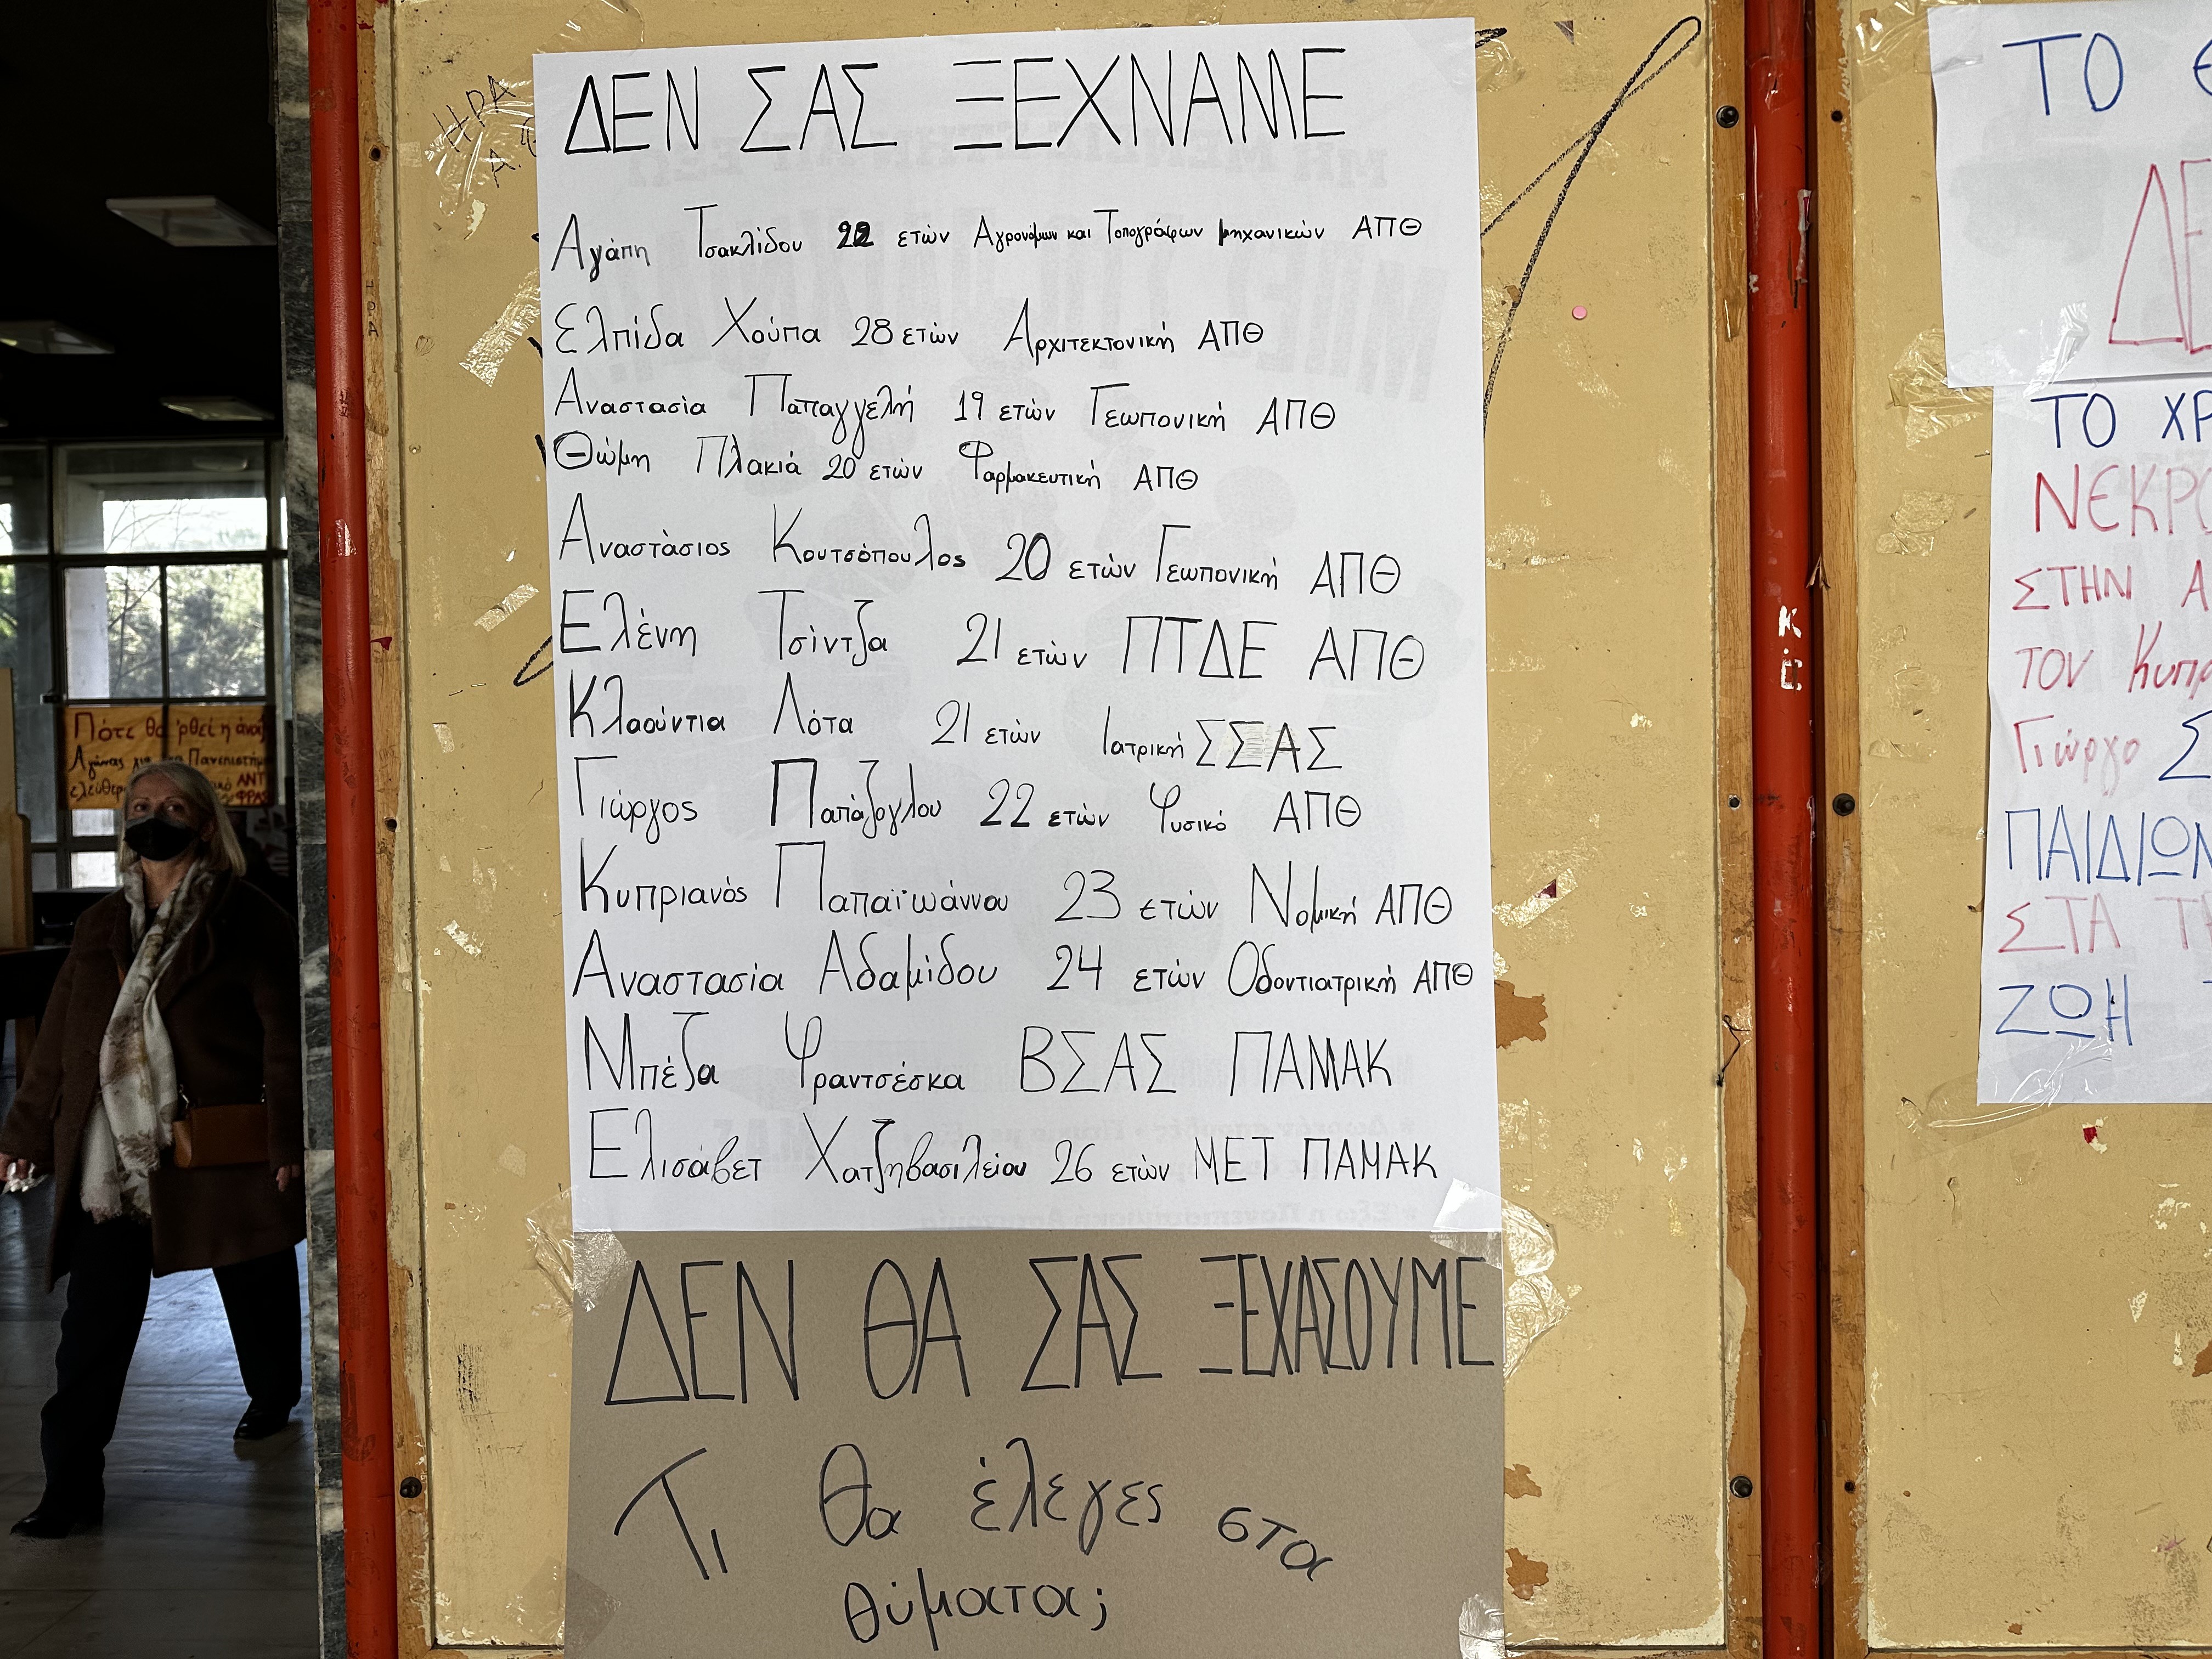 ΔΕΝ ΣΑΣ ΞΕΧΝΑΜΕ
Αγάπη Τσακλίδου 22 ετών Αγρονόμων και Τοπογράφων μηχανικών ΑΠΘ
Ελπίδα Χούπα 28 ετών Αρχιτεκτονική ΑΠΘ
Αναστασία Παπαγγελή 19 ετών Γεωπονική ΑΠΘ
Θώμη Πλακιά 20 ετών Φαρμακευτική ΑΠΘ
Αναστάσιος Κουτσόπουλος 20 ετών Γεωπονική ΑΠΘ
Ελένη Τσίντζα 21 ετών ΠΤΔΕ ΑΠΘ
Κλαούντια Λάτα 21 ετών Ιατρική ΣΣΑΣ
Γιώργος Παπάζογλου 22 ετών Φυσικό ΑΠΘ
Κυπριανός Παπαϊωάννου 23 ετών Νομική ΑΠΘ
Αναστασία Αδαμίδου 24 ετών Οδοντιατρική ΑΠΘ
Μπέζα Φραντσέσκα ΒΣΑΣ ΠΑΜΑΚ
Ελισάβετ Χατζηβασιλείου 26 ετών ΜΕΤ ΠΑΜΑΚ
ΔΕΝ ΘΑ ΣΑΣ ΞΕΧΑΣΟΥΜΕ
Τι θα έλεγες στα
θύματα;
ΤΟ
ΤΟ
ΣΤΗΝ
ΤΟΝ
Γιώργο
ΠΑΙΔΙΩΝ
ΣΤΑ
ΖΩΗ
Πότε θα 'ρθει η
Αγώνας
ΗΡΑ
Κ.Ε